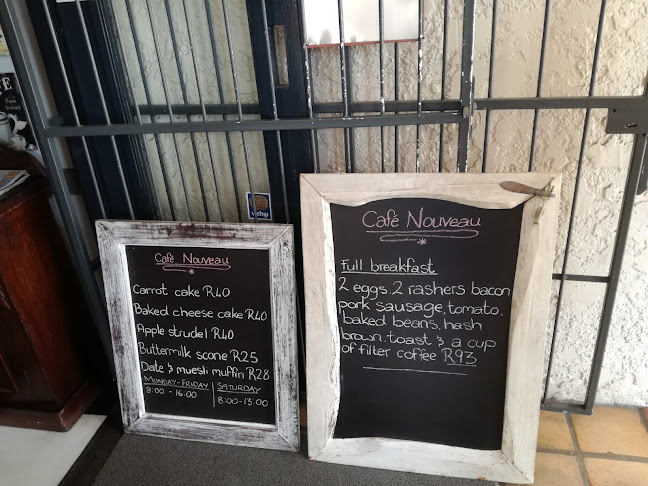 Café Nouveau
Carrot cake R40
Baked cheese cake R40
Apple strudel R40
Buttermilk scone R25
Date & muesli muffin R28
Monday-Friday
8:00 - 16:00
Saturday
8:00-13:00
Café Nouveau
Full breakfast
2 eggs, 2 rashers bacon
pork sausage, tomato,
baked beans, hash
brown, toast & a cup
of filter coffee R93